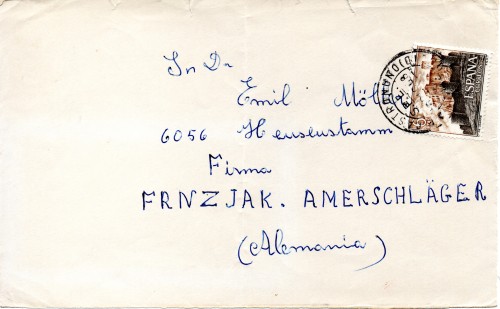 In Dr
Emil Möl
6056 Heusenstamm
Firma
FRNZJAK. AMERSCHLÄGER
(Alemania)
ESPAÑA